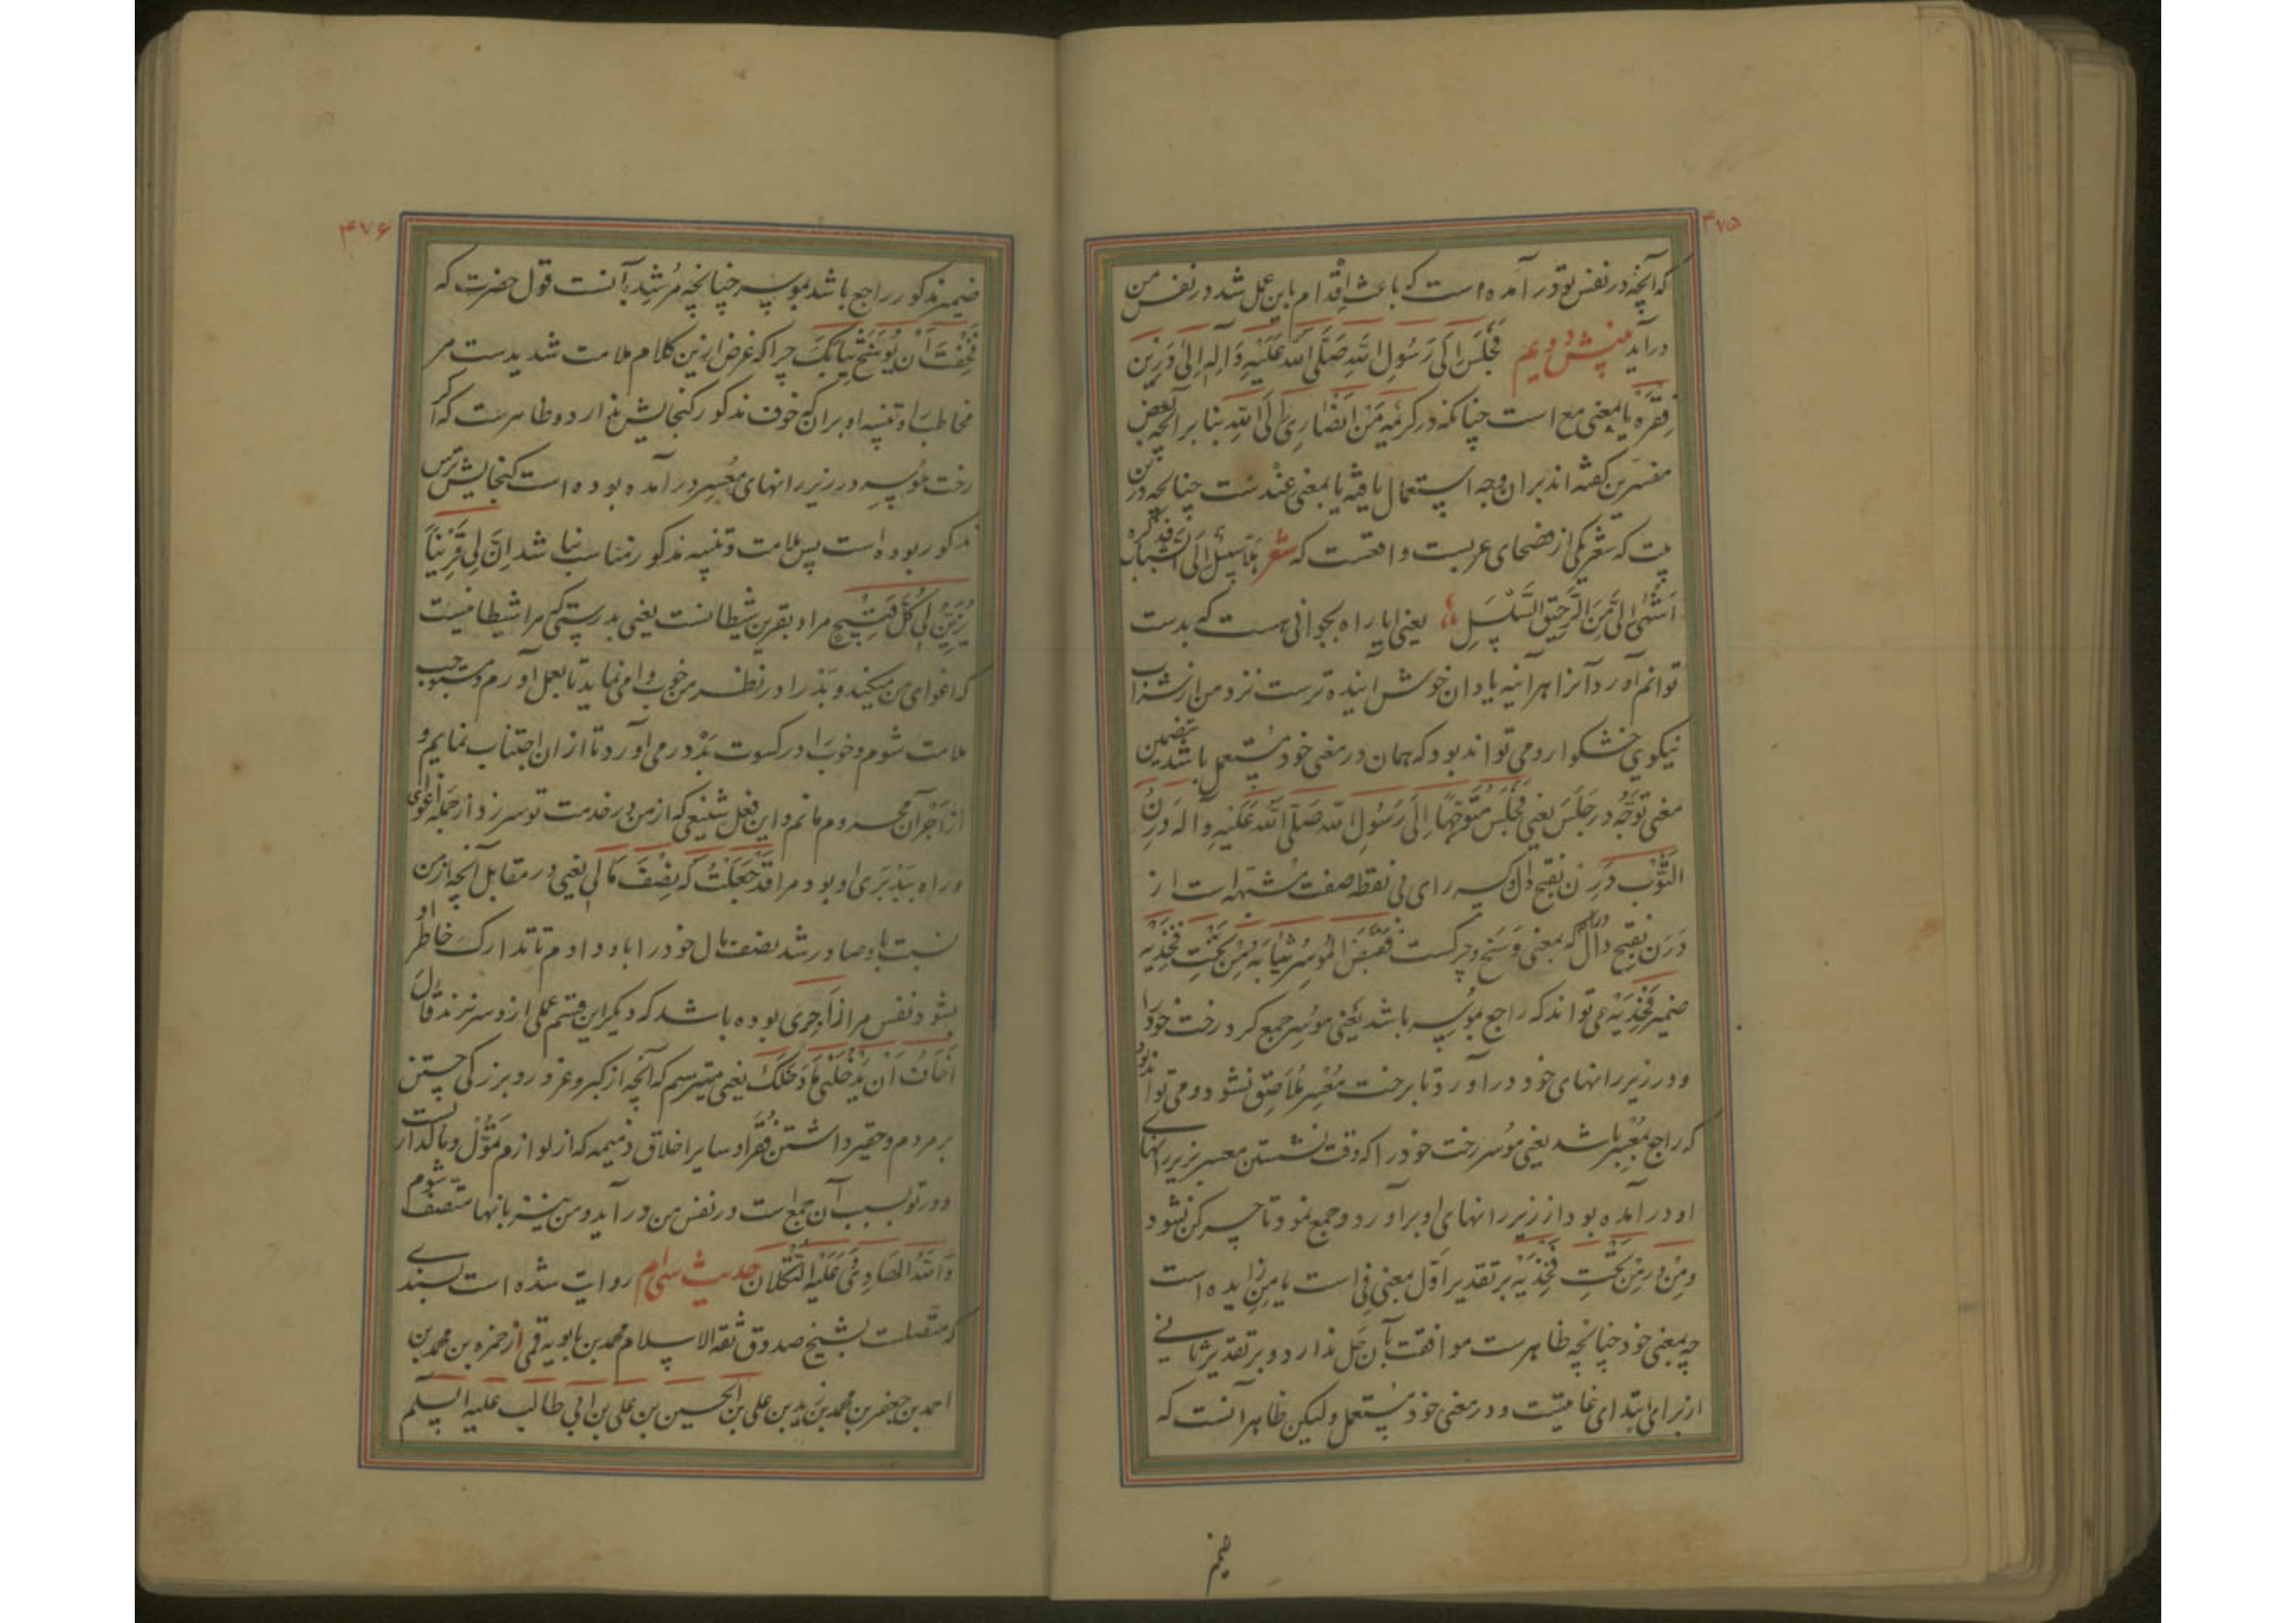 ۴۷۵
که آنچه در نفس تو در آمده است که باعث اقدام باین عمل شد در نفس من
در آید بینش دویم فَجَلَسَ اِلی رَسُولِ اللّهِ صَلَّی اللّه عَلَیْهِ وَ آلِهِ اِلیٰ درین
فقره یا بمعنی مع است چنانکه در کریمه مَن اَنْصٰارِی اِلَی اللّهِ بنا بر آنچه بعض
مفسرین گفته اند بران وجه استعمال یافته یا بمعنی عند ست چنانچه درین
بیت که شعر یکی از فصحای عربست واقعست که شعر اَلا سَبیلَ اِلَی الشَّبابِ وَ ذِکْرُه
اَشْهیٰ اِلَیَّ مِنَ الرَّحیقِ السَّلْسَلِ یعنی ایا راه بجوانی هست که بدست
توانم آورد آنرا هر آینه یاد ان خوش آینده ترست نزد من از شراب
نیکوی خشکوار و می تواند بود که همان در معنی خود مستعمل باشد بتضمین
معنی تَوَجُّه در جَلَسَ یعنی فَجَلَسَ مُتَوَجِّهاً اِلیٰ رَسُولِ اللّه صَلَّی اللّه عَلَیْهِ وَ آله دَرِنُ
الثَّوْبِ دَرِن بفتح دال و کسر رای بی نقطه صفت مشبهه است از
دَرَن بفتح دال و را که بمعنی وَسَخ و چرکست فَقَبَضَ المُوسِرُ ثِیٰابَهُ مِنْ تَحْتِ فَخِذَیْهِ
ضمیر فَخِذَیْهِ می تواند که راجع بموسر باشد یعنی موسر جمع کرد رخت خود را
و در زیر رانهای خود در آورد تا برخت مُعْسِر مُلاصِق نشود و می تواند بود
که راجع بمُعسِر باشد یعنی موسر رخت خود را که وقت نشستن معسر بزیر رانهای
او در آمده بود از زیر رانهای او بر آورد و جمع نمود تا چرکن نشود
و مِنْ در مِنْ تَحْتِ فَخِذَیْهِ بر تقدیر اوّل بمعنی فی است یا مِن زایده است
چه بمعنی خود چنانچه ظاهرست موافقت بآن حَل ندارد و بر تقدیر ثانی
از برای ابتدای غایتست و در معنی خود مستعمل و لیکن ظاهر آنست که
ضمیر
۴۷۶
ضمیر مذکور راجع باشد بموسر چنانچه مُرشِد بآنست قول حضرت که
فَخِفْتَ اَنْ یُوَسِّخَ ثِیٰابَکَ چرا که غرض ازین کلام ملامت شدیدست مر
مخاطب را و تنبیه او بر آن که خوف مذکور گنجایش ندارد و ظاهرست که اگر
رخت موسر در زیر رانهای مُعسِر در آمده بوده است گنجایش ترس
مذکور بوده است پس ملامت و تنبیه مذکور مناسب نباشد اِنَّ لی قَریناً
یُزَیِّنُ لی کُلَّ قَبیحٍ مراد بقرین شیطانست یعنی بدرستی که مرا شیطانیست
که اغوای من میکند و بد را در نظر من خوب وا می نماید تا بعمل آورم و مستوجب
ملامت شوم و خوب را در کسوت بَدْ در می آورد تا از ان اجتناب نمایم و
از اَجْر آن محروم مانم و این فعل شنیعی که از من در خدمت تو سر زد از جمله اغوای
و راه بَدْ بَری او بود مرا قَدْ جَعَلْتُ لَهُ نِصْفَ مٰالی یعنی در مقابل آنچه از من
نسبت باو صادر شد نصف مال خود را باو دادم تا تدارک خاطر او
بشود و نفس مرا زاجری بوده باشد که دیگر این قسم عملی ازو سر نزند قٰالَ
اَخٰافُ اَنْ یَدْخُلَنی مٰا دَخَلَکَ یعنی میترسم که آنچه از کبر و غرور و بزرگی جستن
بر مردم و حقیر داشتن فقرا و سایر اخلاق ذمیمه که از لوازم تَمَوُّل و مالداریست
و در تو بسبب آن جمع است در نفس من در آید و من نیز بانها متصف شوم
وَ اللّهُ الهٰادِی وَ عَلَیْهِ التُّکْلان حدیث سی ام روایت شده است بسندی
که متصلست بشیخ صدوق ثقة الاسلام محمد بن بابویه قمی از حمزه بن محمد بن
احمد بن جعفر بن محمد بن زید بن علی بن الحسین بن علی بن ابی طالب علیه السلم